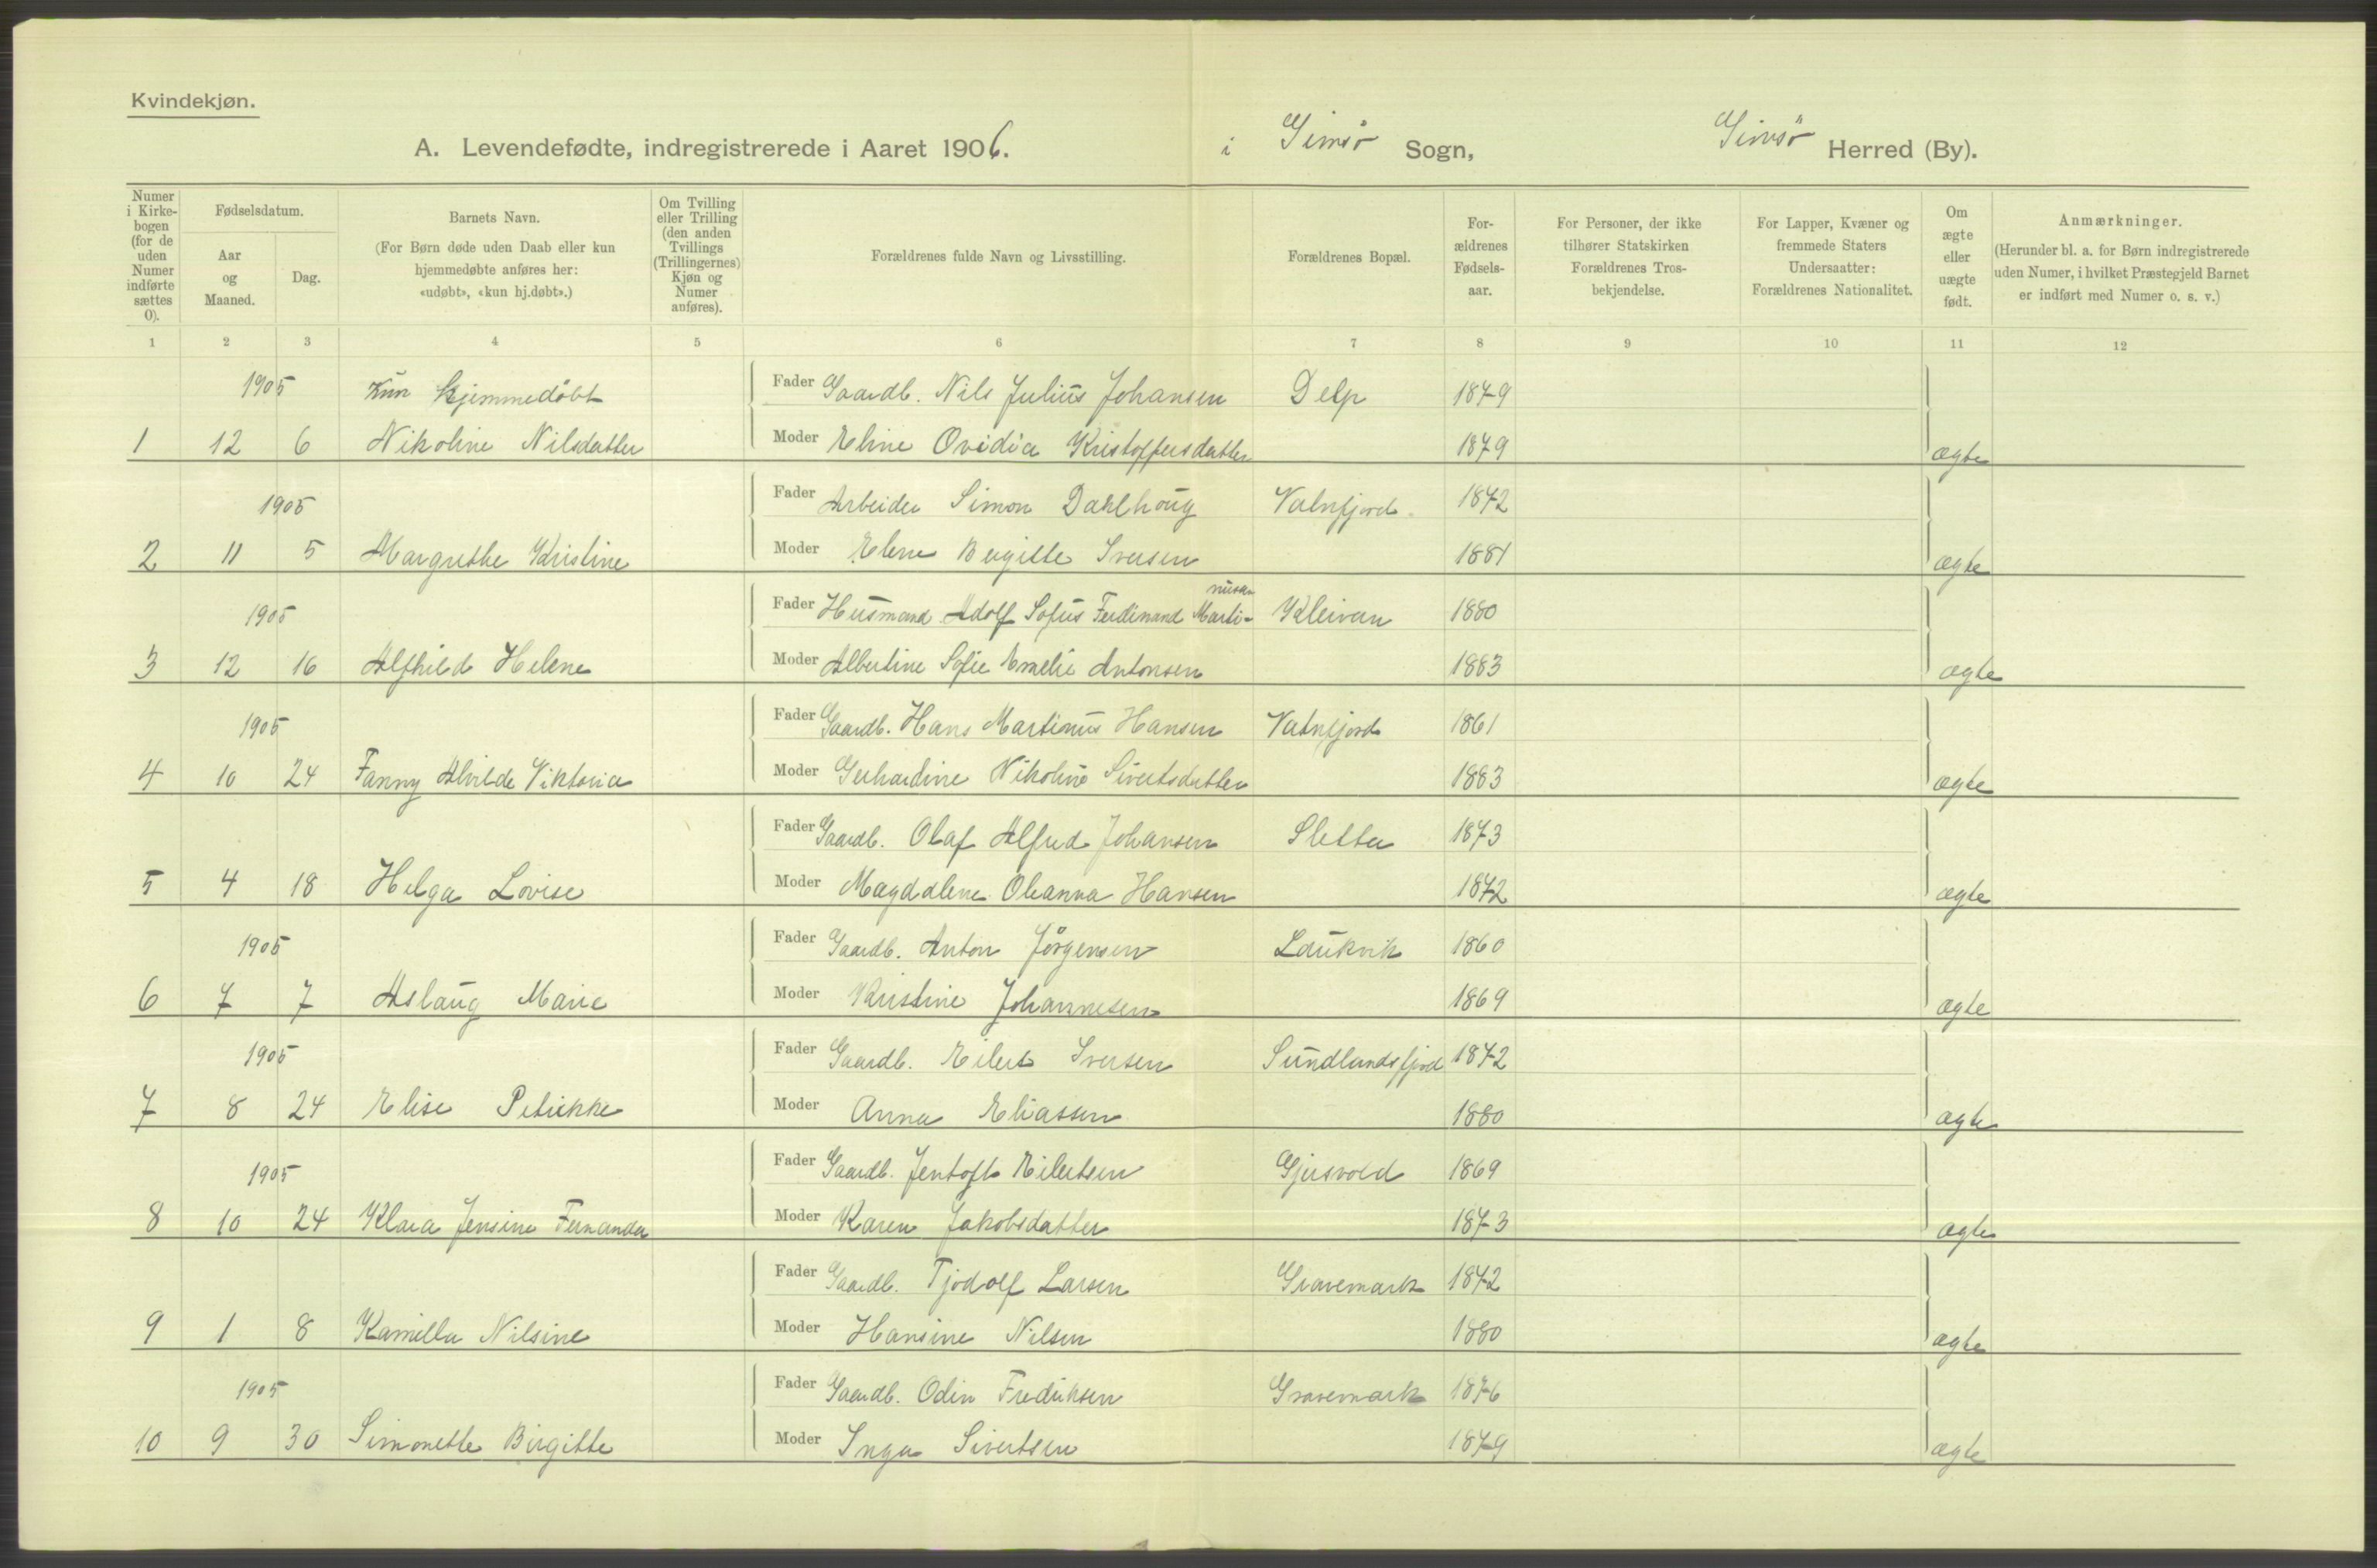 Kvindekjøn.
A. Levendefødte, indregistrerede i Aaret 1906. i Gimsö Sogn, Gimsö Herred (By).
Numer i Kirkebogen (for de uden Numer indførte sættes 0).
Fødselsdatum.
Aar og Maaned.
Dag.
Barnets Navn.
(For Børn døde uden Daab eller kun hjemmedøbte anføres her: «udøbt», «kun hj.døbt».)
Om Tvilling eller Trilling (den anden Tvillings (Trillingernes) Kjøn og Numer anføres).
Forældrenes fulde Navn og Livsstilling.
Forældrenes Bopæl.
Forældrenes Fødselsaar.
For Personer, der ikke tilhører Statskirken Forældrenes Trosbekjendelse.
For Lapper, Kvæner og fremmede Staters Undersaatter: Forældrenes Nationalitet.
Om ægte eller uægte født.
Anmærkninger.
(Herunder bl. a. for Børn indregistrerede uden Numer, i hvilket Præstegjeld Barnet er indført med Numer o. s. v.)
1 2 3 4 5 6 7 8 9 10 11 12
1905 Kun hjemmedöbt Fader Gaardb. Nils Julius Johansen Delp 1879
1 12 6 Nikoline Nilsdatter Moder Eline Ovidia Kristoffersdatter 1879 ægte
1905 Fader Arbeider Simon Dahlhoug Vatnfjord 1872
2 11 5 Margrethe Kristine Moder Elene Bergitte Iversen 1881 ægte
1905 Fader Husmand Adolf Sofus Ferdinand Martinusen Kleivan 1880
3 12 16 Alfhild Helene Moder Albertine Sofie Emelie Antonsen 1883 ægte
1905 Fader Gaardb. Hans Martinus Hansen Vatnfjord 1861
4 10 24 Fanny Alvilde Viktoria Moder Gerhardine Nikoline Sivertsdatter 1883 ægte
Fader Gaardb. Olaf Alfred Johansen Sletta 1873
5 4 18 Helga Lovise Moder Magdalene Oleanna Hansen 1872 ægte
1905 Fader Gaardb. Anton Jörgensen Laukvik 1860
6 7 7 Aslaug Marie Moder Kristine Johannesen 1869 ægte
1905 Fader Gaardb. Eilert Iversen Sundlandsfjord 1872
7 8 24 Elise Petrikke Moder Anna Eliassen 1880 ægte
1905 Fader Gaardb. Jentoft Eilertsen Gjersvold 1869
8 10 24 Klara Jensine Fernanda Moder Karen Jakobsdatter 1873 ægte
Fader Gaardb. Tjodolf Larsen Gravermark 1872
9 1 8 Kamilla Nilsine Moder Hansine Nilsen 1880 ægte
1905 Fader Gaardb. Odin Fredriksen Gravermark 1876
10 9 30 Simonette Birgitte Moder Inga Sivertsen 1879 ægte